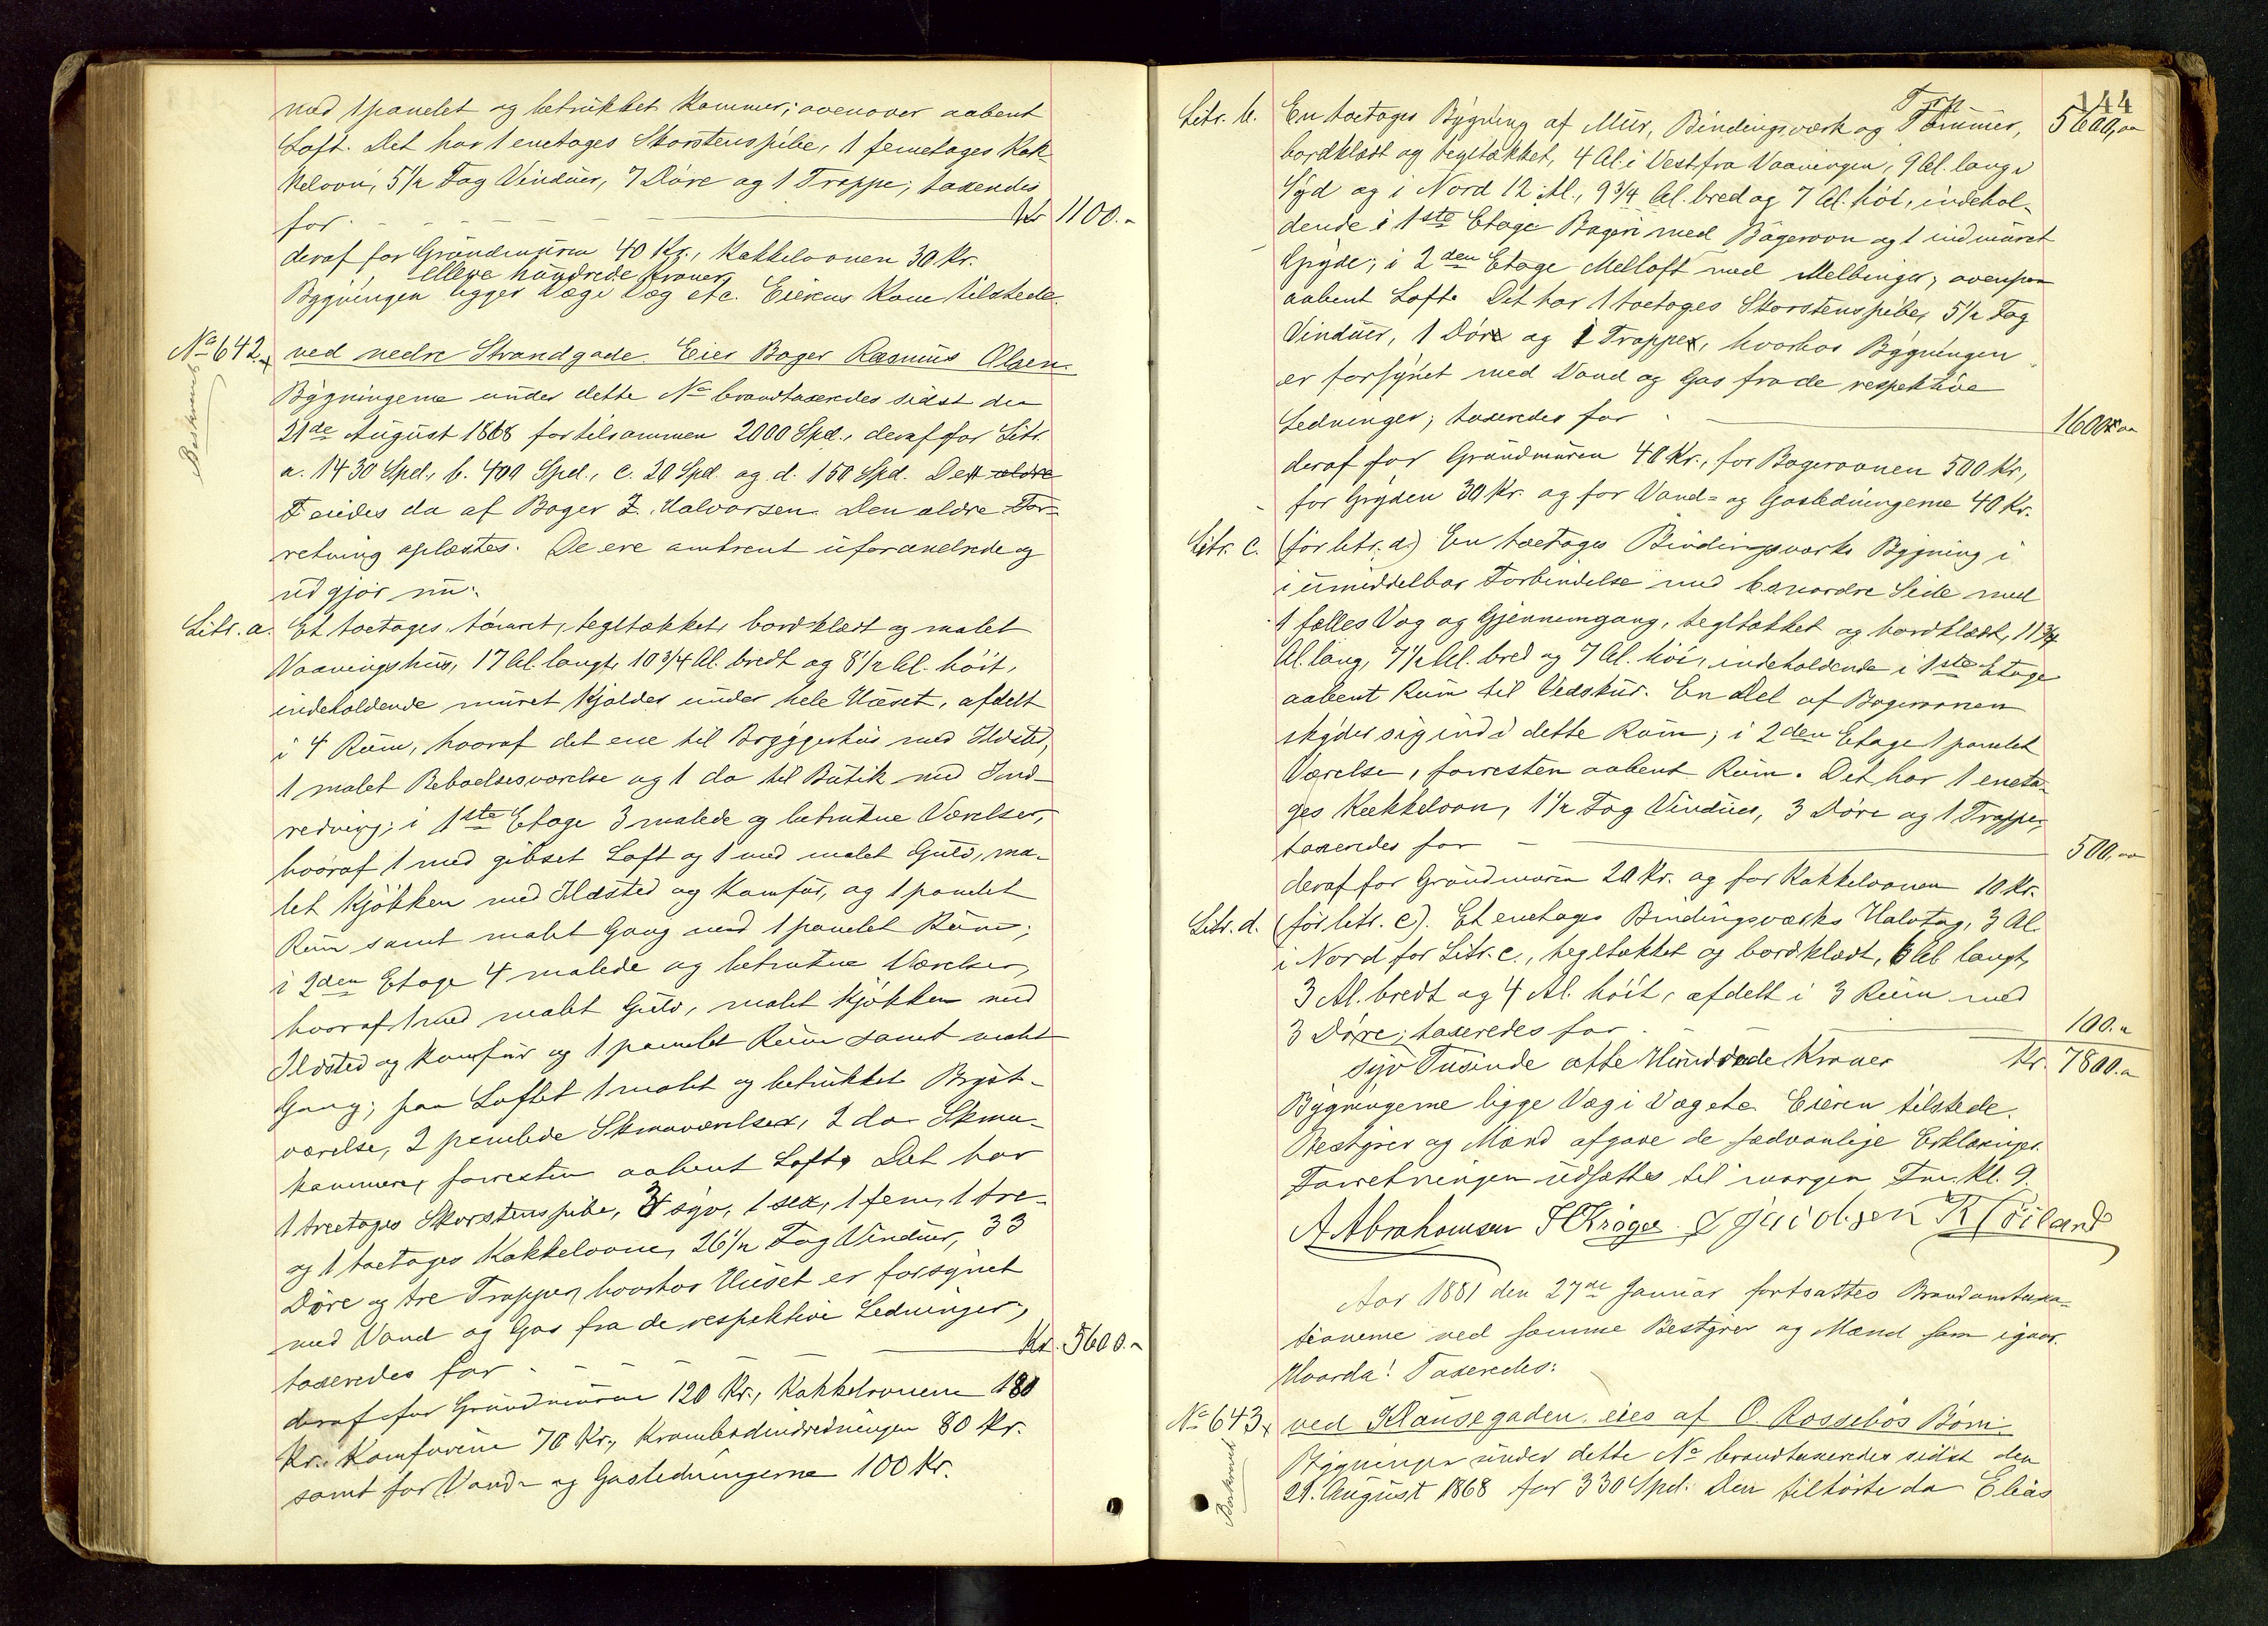 med 1 panelet og betrukket Kammer; ovenover aabent
Loft. Det har 1 enetages Skorstenspibe, 1 femetages Kak-
kelovn, 5 1/2 Fag Vinduer, 7 Døre og 1 Trappe; taxeredes
for - - - Kr 1100.-
deraf for Grundmuren 40 Kr., Kakkelovnen 30 Kr.
elleve hundrede Kroner
Bygningen ligger Væg i Væg etc. Eieren kom tilstede.
No 642. ved nedre Strandgade. Eier Bager Rasmus Olsen.
Beskrevet
Bygningerne under dette No brandtaxeredes sidst den
21de August 1868 for tilsammen 2000 Spd., deraf for Litr.
a. 1430 Spd., b. 400 Spd., c. 20 Spd. og d. 150 Spd. Det ældre
F eiedes da af Bager Z. Halvorsen. Den ældre For-
retning oplæstes. De ere omtrent uforandrede og
udgjør nu:
Litr. a. Et toetages tømret, tegltækket, bordklædt og malet
Vaaningshus, 17 Al. langt, 10 3/4 Al. bredt og 8 1/2 Al. høit,
indeholdende muret Kjælder under hele Huset, afdelt
i 4 Rum, hvoraf det ene til Bryggerhus med Ildsted,
1 malet Beboelsesværelse og 1 do til Butik med Ind-
redning; i 1ste Etage 3 malede og betrukne Værelser,
hvoraf 1 med gibset Loft og 1 med malet Gulv, ma-
let Kjøkken med Ildsted og Komfur, og 1 panelet
Rum samt malet Gang med 1 panelet Rum;
i 2den Etage 4 malede og betrukne Værelser,
hvoraf 1 med malet Gulv, malet Kjøkken med
Ildsted og Komfur og 1 panelet Rum samt malet
Gang; paa Loftet 1 malet og betrukket Kvist-
værelse, 2 panelede Skraaværelser, 2 do Skraa-
kammere, forresten aabent Loft. Det har
1 treetages Skorstenspibe, 3 syv, 1 sex, 1 fem, 1 tre-
og 1 toetages Kakkelovne, 26 1/2 Fag Vinduer, 33
Døre og tre Trapper, hvorhos Huset er forsynet
med Vand og Gas fra de respektive Ledninger;
taxeredes for - - - Kr. 5600.-
deraf for Grundmuren 120 Kr., Kakkelovnene 180
Kr., Komfurene 70 Kr., Krambodindredningen 80 Kr.
samt for Vand- og Gasledningerne 100 Kr.
144
Trp 5600,00
Litr. b. En toetages Bygning af Mur, Bindingsværk og Tømmer,
bordklædt og tegltækket, 4 Al. i Vest fra Vaaningen, 9 Al. lang i
Syd og i Nord 12 Al., 9 3/4 Al. bred og 7 Al. høi, indehol-
dende i 1ste Etage Bageri med Bagerovn og 1 indmuret
Gryde; i 2den Etage Melloft med Melbinger, ovenpaa
aabent Loft. Det har 1 toetages Skorstenspibe, 5 1/2 Fag
Vinduer, 1 Dør og 1 Trappe, hvorhos Bygningen
er forsynet med Vand og Gas fra de respektive
Ledninger; taxeredes for - 1600,00
deraf for Grundmuren 40 Kr., for Bagerovnen 500 Kr.,
for Gryden 30 Kr. og for Vand- og Gasledningerne 40 Kr.
Litr. c. (før litr. d.) En toetages Bindingsværks Bygning i
i umiddelbar Forbindelse med b.s nordre Side med
1 fælles Væg og Gjennemgang, tegltækket og bordklædt, 11 3/4
Al. lang, 7 1/2 Al. bred og 7 Al. høi, indeholdende i 1ste Etage
aabent Rum til Vedskur. En Del af Bagerovnen
skyder sig ind i dette Rum; i 2den Etage 1 panelet
Værelse, forresten aabent Rum. Det har 1 eneta-
ges Kakkelovn, 1 1/2 Fag Vinduer, 3 Døre og 1 Trappe,
taxeredes for - 500,00
deraf for Grundmuren 20 Kr. og for Kakkelovnen 10 Kr.
Litr. d. (før litr. c). Et enetages Bindingsværks Halvtag, 3 Al.
i Nord for Litr. c., tegltækket og bordklædt, 6 Al. langt,
3 Al. bredt og 4 Al. høit, afdelt i 3 Rum med
3 Døre; taxeredes for - 100.-
syv Tusinde otte Hundrede Kroner Kr. 7800.-
Bygningerne ligge Væg i Væg etc. Eieren tilstede.
Bestyrer og Mænd afgave de sædvanlige Erklæringer.
Forretningen udsættes til imorgen Fm. Kl. 9.
A Abrahamsen Krøger Jacobsen K Höiland
Aar 1881 den 27de Januar fortsattes Brandomtaxa-
tionerne ved samme Bestyrer og Mænd som igaar.
Hvorda! Taxeredes:
No 643. ved Klausegaden. eies af O. Rossebös Børn.
Beskrevet
Bygningen under dette No brandtaxeredes sidst den
21. August 1868 for 330 Spd. Den tilhørte da Elias